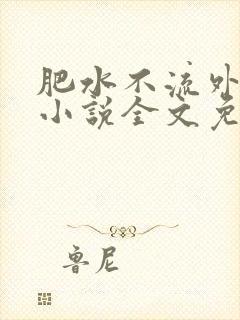 肥水不流外
小说全文免
鲁尼